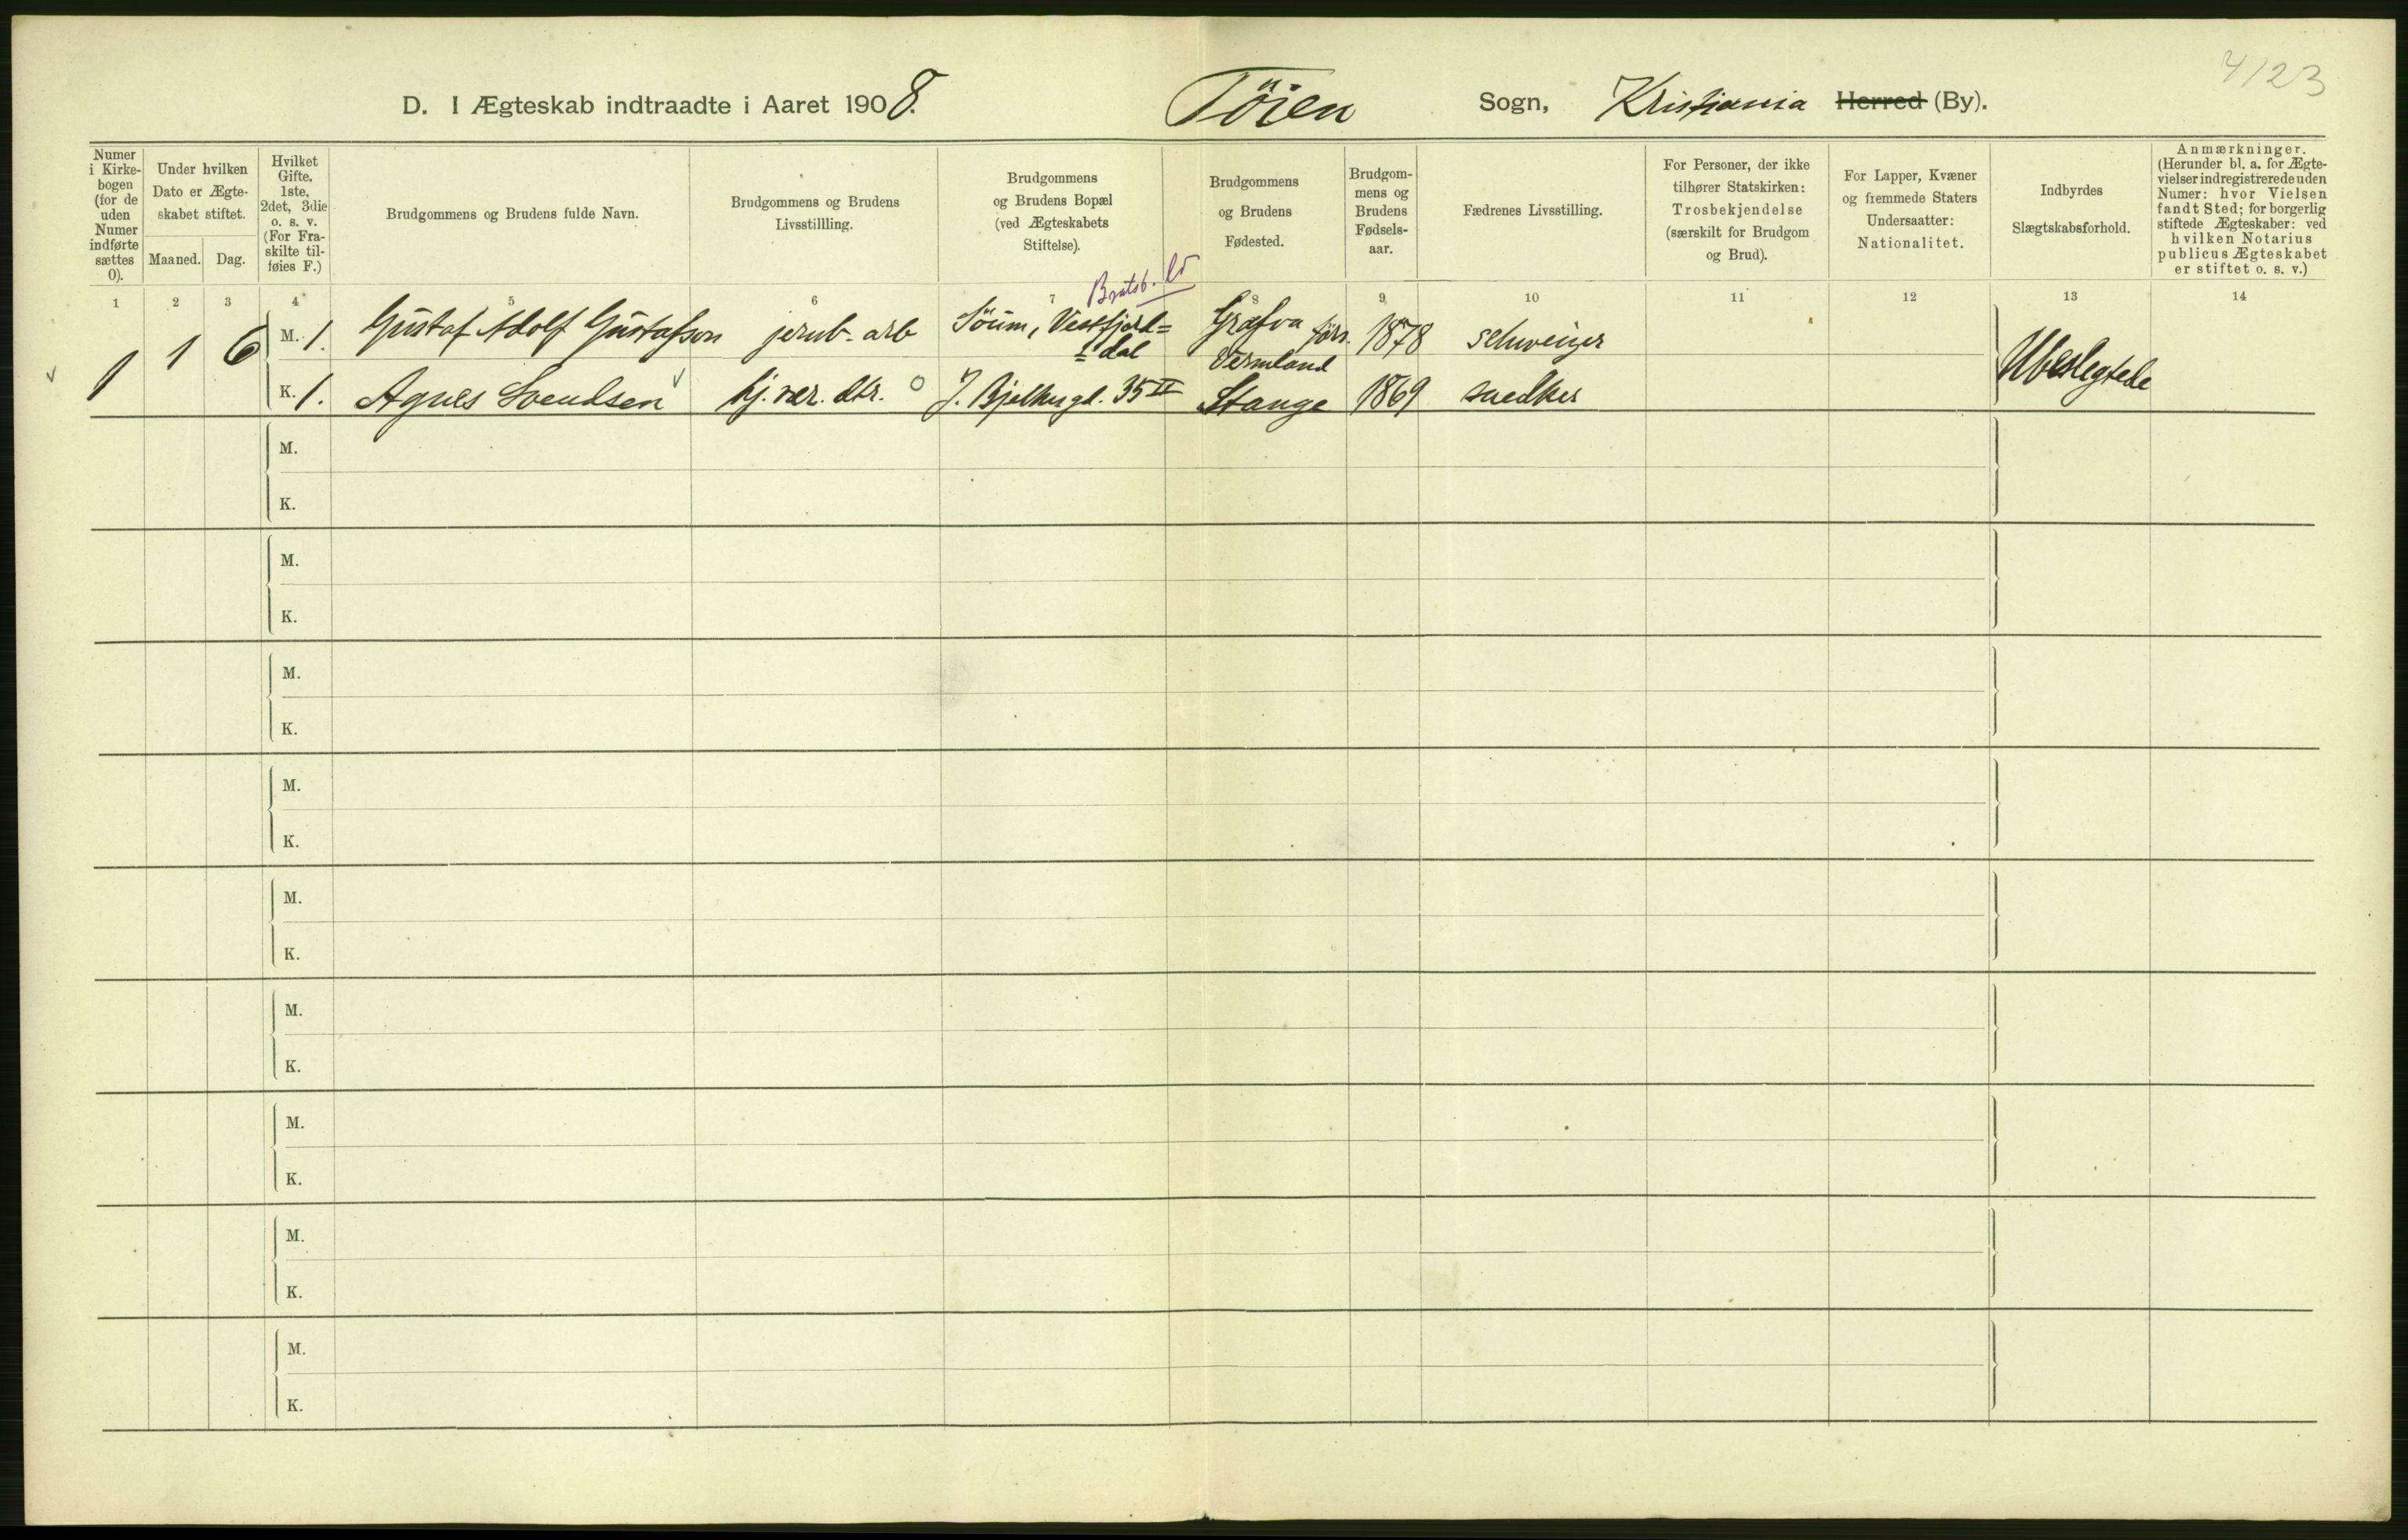 4/23
D. I Ægteskab indtraadte i Aaret 1908. Töien Sogn, Kristiania Herred (By).
Numer
i Kirke-
bogen
(for de
uden
Numer
indførte
sættes
0).
Under hvilken
Dato er Ægte-
skabet stiftet.
Maaned. Dag.
Hvilket
Gifte.
1ste,
2det, 3die
o. s. v.
(For Fra-
skilte til-
føies F.)
Brudgommens og Brudens fulde Navn.
Brudgommens og Brudens
Livsstillling.
Brudgommens
og Brudens Bopæl
(ved Ægteskabets
Stiftelse).
Brudgommens
og Brudens
Fødested.
Brudgom-
mens og
Brudens
Fødsels-
aar.
Fædrenes Livsstilling.
For Personer, der ikke
tilhører Statskirken:
Trosbekjendelse
(særskilt for Brudgom
og Brud).
For Lapper, Kvæner
og fremmede Staters
Undersaatter:
Nationalitet.
Indbyrdes
Slægtskabsforhold.
Anmærkninger.
(Herunder bl. a. for Ægte-
vielser indregistrerede uden
Numer: hvor Vielsen
fandt Sted; for borgerlig
stiftede Ægteskaber: ved
hvilken Notarius
publicus Ægteskabet
er stiftet o. s. v.)
1 2 3 4 5 6 7 8 9 10 11 12 13 14
Bratsb.
1 1 6 M. 1. Gustaf Adolf Gustafson jernb. arb Söum, Vestfjord=
dal Grafva förs.
Vermland 1878 schweizer Ubeslegtede
K. 1. Agnes Svendsen hj. vær. dtr. J. Bjelkes gd. 35 II Stange 1869 snedker
M.
K.
M.
K.
M.
K.
M.
K.
M.
K.
M.
K.
M.
K.
M.
K.
M.
K.